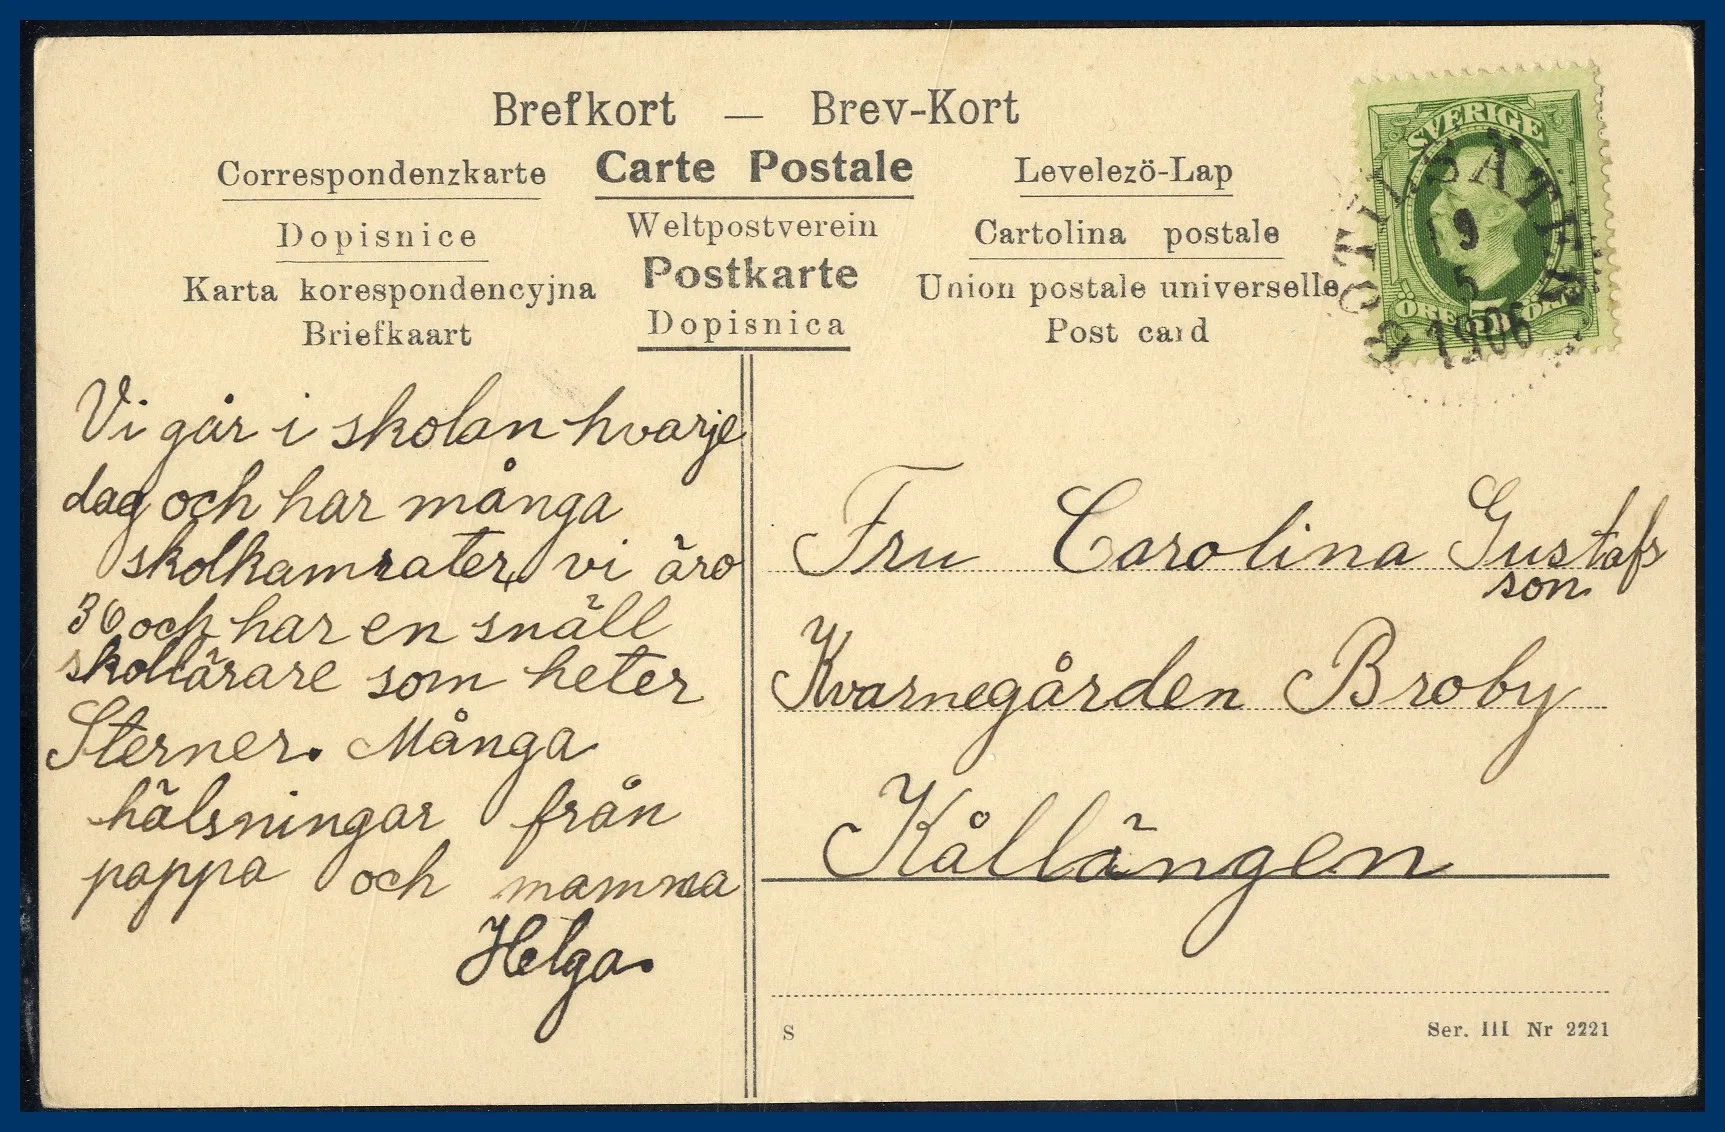 Brefkort — Brev-Kort
Correspondenzkarte
Carte Postale
Levelezö-Lap
Dopisnice
Weltpostverein
Cartolina postale
Karta korespondencyjna
Postkarte
Union postale universelle
Briefkaart
Dopisnica
Post card
SVERIGE
BOTILSÄTER
19
5
1906
ÖRE 5 ÖRE
Vi går i skolan hvarje
dag och har många
skolkamrater, vi äro
36 och har en snäll
skollärare som heter
Sterner. Många
hälsningar från
pappa och mamma
Helga.
Fru Carolina Gustafs
son
Kvarnegården Broby
Kållängen
S
Ser. III Nr 2221